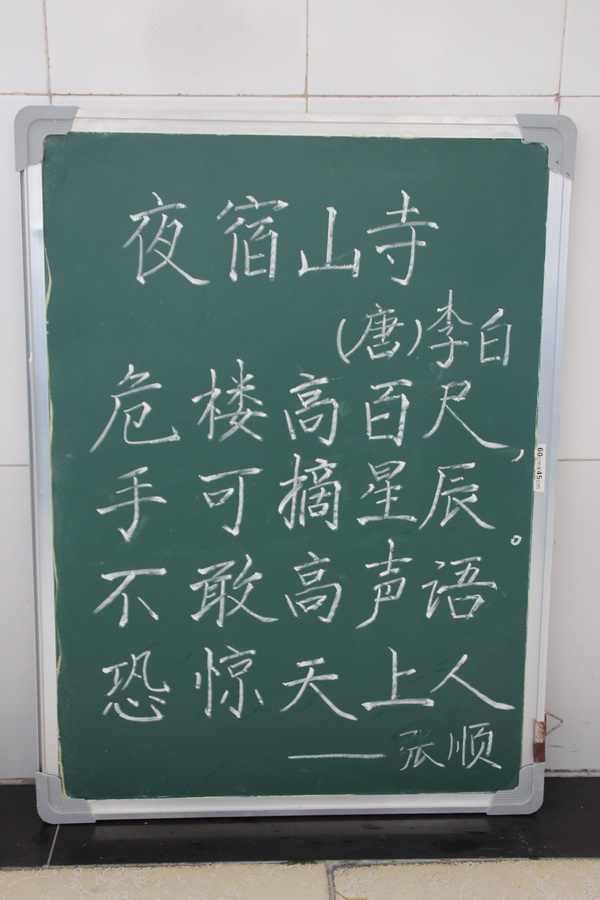 夜宿山寺
(唐)李白
危楼高百尺，
手可摘星辰。
不敢高声语
恐惊天上人
——张顺
60cm×45cm